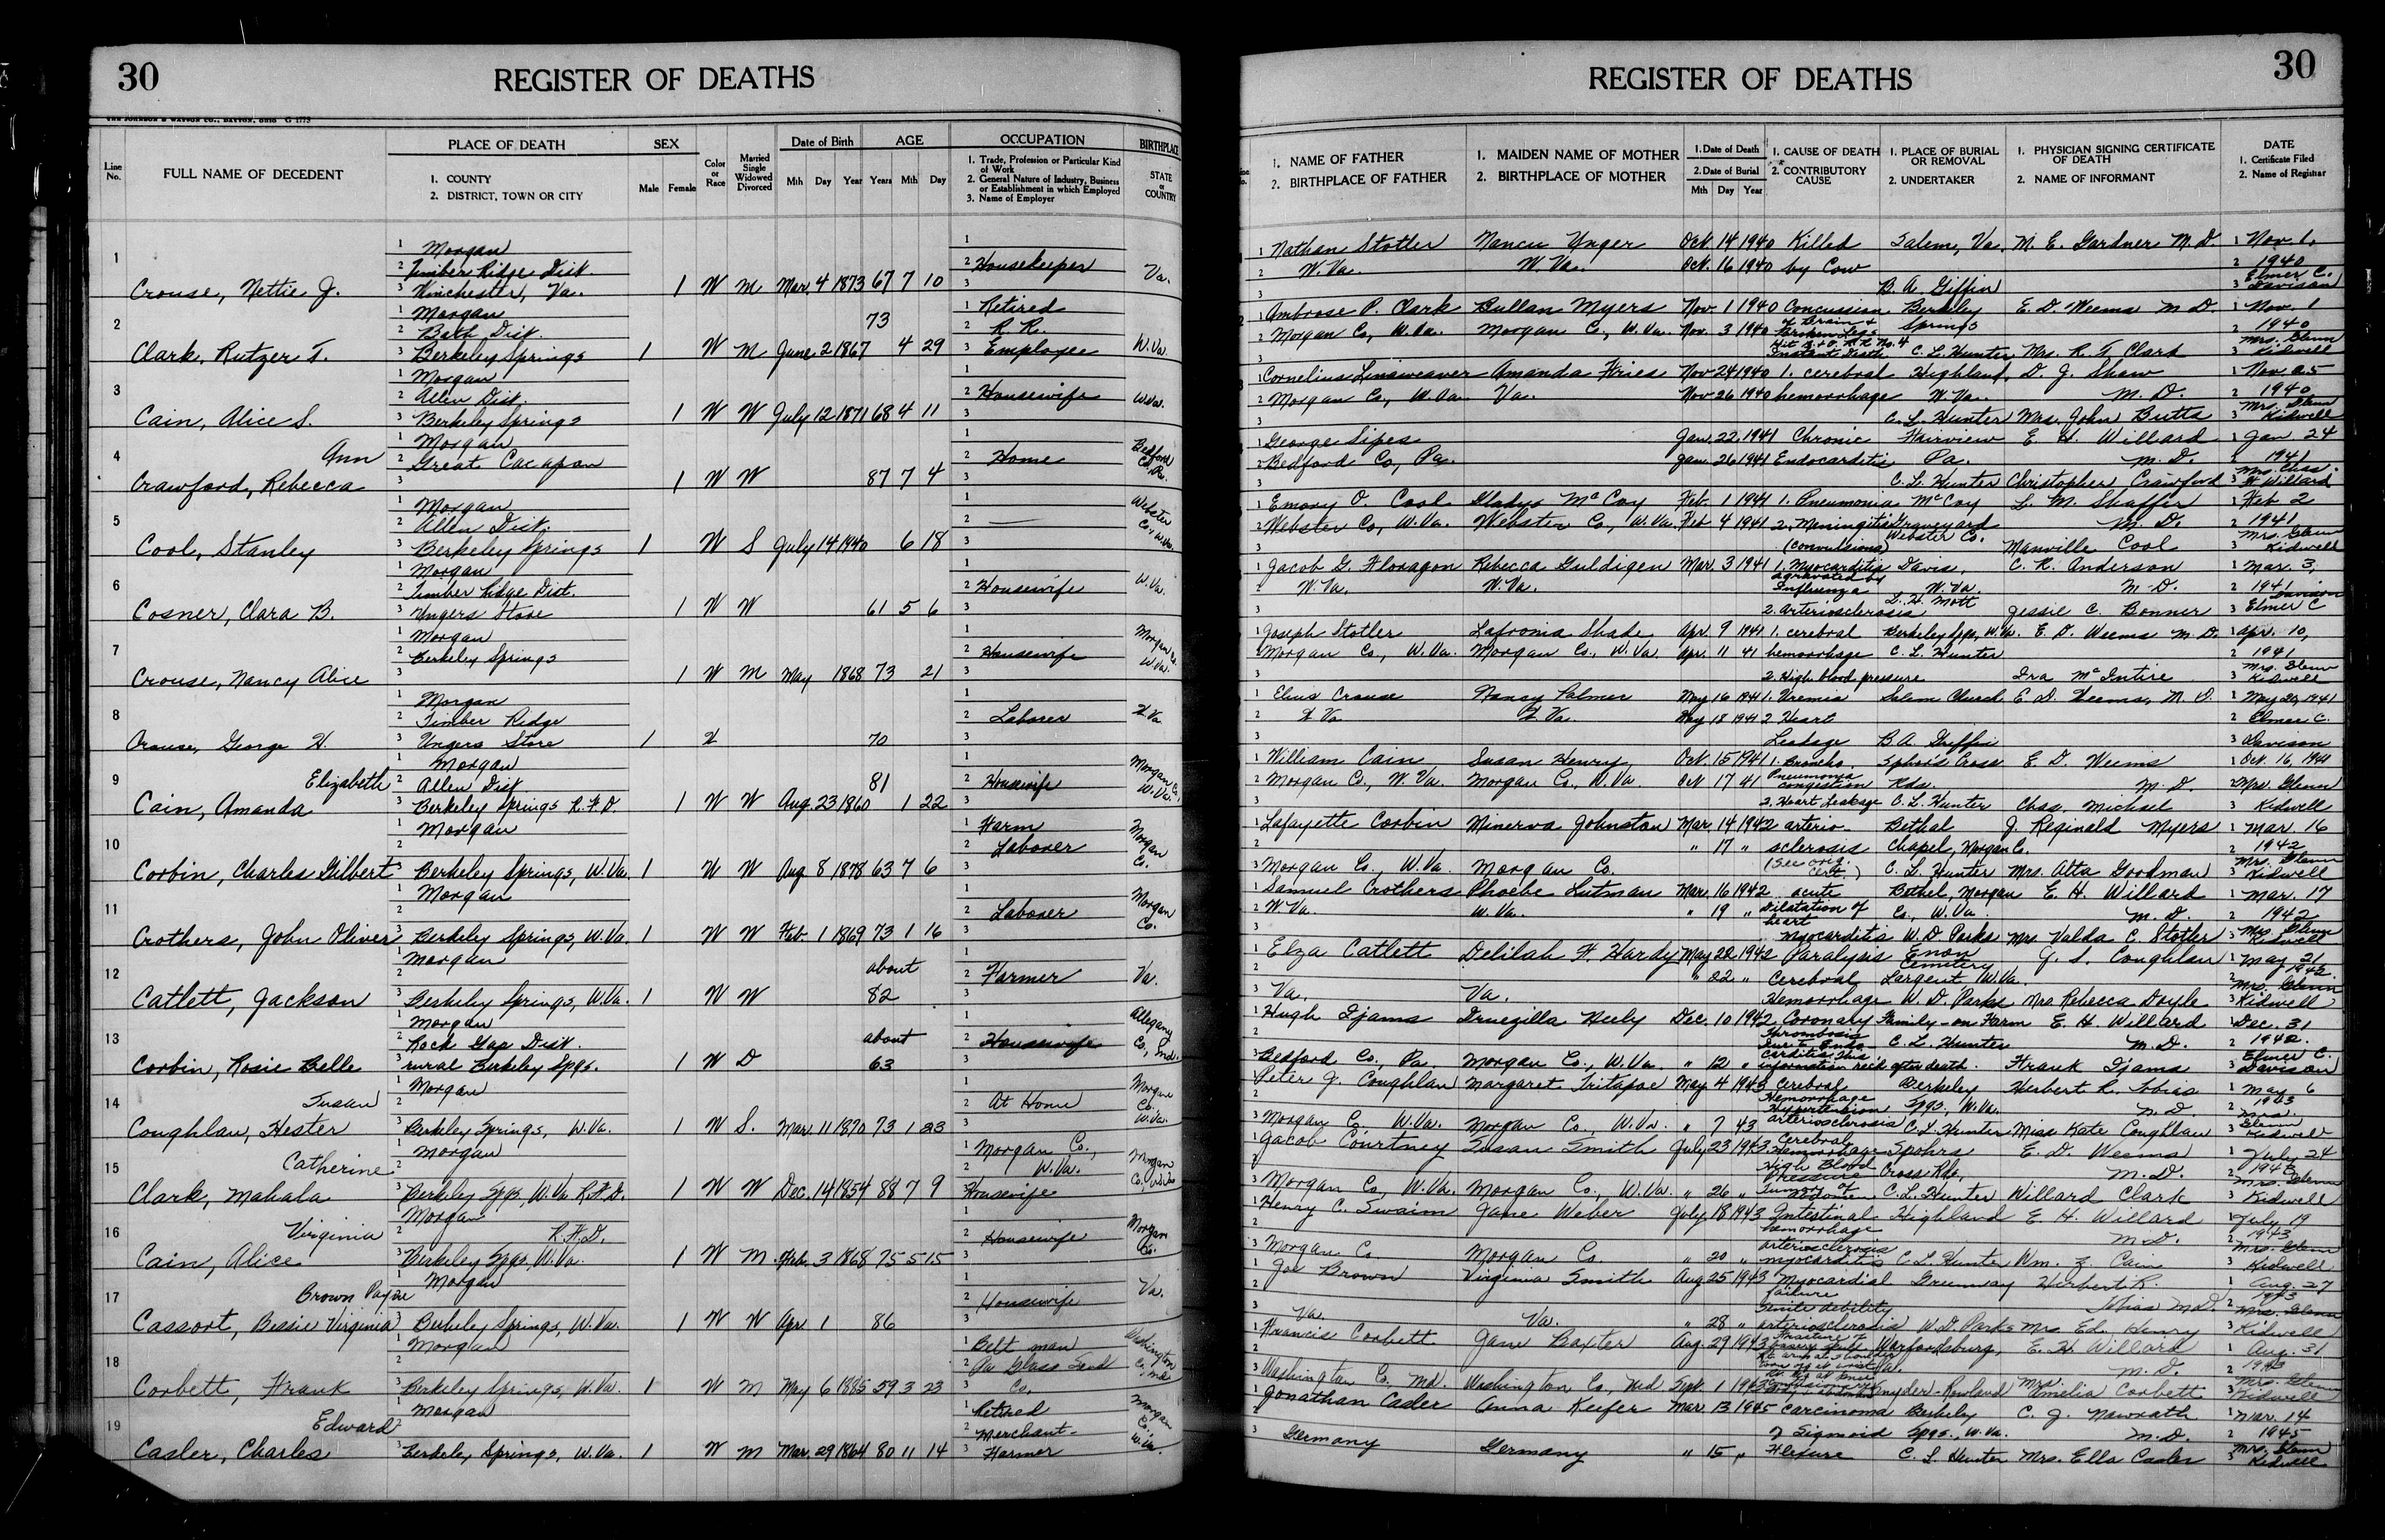 30
REGISTER OF DEATHS
THE JOHNSON & WATSON CO., DAYTON, OHIO G 1773
Line No.
FULL NAME OF DECEDENT
PLACE OF DEATH
1. COUNTY
2. DISTRICT, TOWN OR CITY
SEX
Male Female
Color or Race
Married Single Widowed Divorced
Date of Birth
Mth Day Year
AGE
Years Mth Day
OCCUPATION
1. Trade, Profession or Particular Kind of Work
2. General Nature of Industry, Business or Establishment in which Employed
3. Name of Employer
BIRTHPLACE
STATE or COUNTRY
1 Crouse, Nettie J. 1 Morgan 2 Timber Ridge Dist. 3 Winchester, Va. 1 W M Mar. 4 1873 67 7 10 2 Housekeeper Va.
2 Clark, Rutzer T. 1 Morgan 2 Bath Dist. 3 Berkeley Springs 1 W M June 2 1867 73 4 29 1 Retired 2 R.R. 3 Employee W.Va.
3 Cain, Alice S. 1 Morgan 2 Allen Dist. 3 Berkeley Springs 1 W W July 12 1871 68 4 11 2 Housewife W.Va.
4 Crawford, Rebecca Ann 1 Morgan 2 Great Cacapon 1 W W 87 7 4 2 Home Bedford Co, Pa.
5 Cool, Stanley 1 Morgan 2 Allen Dist. 3 Berkeley Springs 1 W S July 14 1940 6 18 2 — Webster Co, W.Va.
6 Cosner, Clara B. 1 Morgan 2 Timber Ridge Dist. 3 Ungers Store 1 W W 61 5 6 2 Housewife W.Va.
7 Crouse, Nancy Alice 1 Morgan 2 Berkeley Springs 1 W M May 1868 73 21 2 Housewife Morgan Co. W.Va.
8 Crouse, George H. 1 Morgan 2 Timber Ridge 3 Ungers Store 1 W 70 2 Laborer W Va
9 Cain, Amanda Elizabeth 1 Morgan 2 Allen Dist. 3 Berkeley Springs R.F.D. 1 W W Aug. 23 1860 81 1 22 2 Housewife Morgan Co, W.Va.
10 Corbin, Charles Gilbert 1 Morgan Berkeley Springs, W.Va. 1 W W Aug 8 1878 63 7 6 1 Farm 2 Laborer Morgan Co.
11 Crothers, John Oliver 1 Morgan 3 Berkeley Springs, W.Va. 1 W W Feb. 1 1869 73 1 16 2 Laborer Morgan Co.
12 Catlett, Jackson 1 Morgan 3 Berkeley Springs, W.Va. 1 W W about 82 2 Farmer Va.
13 Corbin, Rosie Belle 1 Morgan 2 Rock Gap Dist. 3 rural Berkeley Spgs. 1 W D about 63 2 Housewife Allegany Co, Md.
14 Coughlan, Hester Susan 1 Morgan 3 Berkeley Springs, W.Va. 1 W S. Mar. 11 1870 73 1 23 2 At Home Morgan Co. W.Va.
15 Clark, Mahala Catherine 1 Morgan 3 Berkeley Spgs, W.Va. R.F.D. 1 W W Dec. 14 1854 88 7 9 1 Morgan Co., 2 W.Va. Housewife Morgan Co., W.Va
16 Cain, Alice Virginia 1 Morgan 2 R.F.D. 3 Berkeley Spgs, W.Va. 1 W M Feb. 3 1868 75 5 15 2 Housewife Morgan Co.
17 Cassort, Bessie Virginia Brown Payne 1 Morgan 3 Berkeley Springs, W.Va. 1 W W Apr 1 86 2 Housewife Va.
18 Corbett, Frank 1 Morgan 3 Berkeley Springs, W.Va. 1 W M May 6 1885 59 3 23 1 Belt man 2 Pa Glass Sand 3 Co. Washington Co, Md
19 Casler, Charles Edward 1 Morgan 3 Berkeley Springs, W.Va. 1 W M Mar. 29 1864 80 11 14 1 Retired 2 Merchant- 3 Farmer Morgan Co. W.Va.
30
REGISTER OF DEATHS
1. NAME OF FATHER
2. BIRTHPLACE OF FATHER
1. MAIDEN NAME OF MOTHER
2. BIRTHPLACE OF MOTHER
1. Date of Death
2. Date of Burial
Mth Day Year
1. CAUSE OF DEATH
2. CONTRIBUTORY CAUSE
1. PLACE OF BURIAL OR REMOVAL
2. UNDERTAKER
1. PHYSICIAN SIGNING CERTIFICATE OF DEATH
2. NAME OF INFORMANT
DATE
1. Certificate Filed
2. Name of Registrar
1 Nathan Stotler Nancy Unger Oct. 14 1940 Killed Salem, Va. M. E. Gardner M.D. 1 Nov. 1,
2 W.Va. W.Va. Oct. 16 1940 by Cow 2 1940
3 B. A. Giffin 3 Elmer C. Davison
1 Ambrose P. Clark Bullan Myers Nov. 1 1940 Concussion Berkeley E. D. Weems M D. 1 Nov. 1
2 Morgan Co, W.Va. Morgan Co, W.Va. Nov. 3 1940 of Brain & Broken Legs Springs 2 1940
3 Hit B.&O. R R No. 4 Instant Death C. L. Hunter Mrs. R. T Clark 3 Mrs. Glenn Kidwell
1 Cornelius Linaweaver Amanda Fries Nov 24 1940 1. cerebral Highland, D. J. Shaw 1 Nov 25
2 Morgan Co, W.Va. Va. Nov 26 1940 hemorrhage W.Va. M.D. 2 1940
3 C. L. Hunter Mrs. John Butts 3 Mrs. Glenn Kidwell
1 George Sipes Jan. 22, 1941 Chronic Fairview E. H. Willard 1 Jan 24
2 Bedford Co, Pa. Jan 26 1941 Endocarditis Pa. M.D. 2 1941
3 C. L. Hunter Christopher Crawford 3 Mrs. Chas. H Willard
1 Emory O. Cool Gladys McCoy Feb. 1 1941 1. Pneumonia McCoy L. M. Shaffer 1 Feb 2
2 Webster Co, W.Va. Webster Co, W.Va. Feb 4 1941 2. Meningitis Graveyard M.D. 2 1941
3 (convulsions) Webster Co. Manville Cool 3 Mrs. Glenn Kidwell
1 Jacob G. Floragon Rebecca Guldigen Mar. 3 1941 1. Myocarditis Davis, C. R. Anderson 1 Mar. 3,
2 W.Va. W.Va. agravated by Influenza W.Va. M.D. 2 1941
3 2. Arteriosclerosis L. H. Mott Jessie C. Bonner 3 Elmer C Davison
1 Joseph Stotler Lafronia Shade Apr. 9 1941 1. cerebral Berkeley Spgs, W.Va. E. D. Weems M.D. 1 Apr. 10,
2 Morgan Co., W.Va. Morgan Co., W.Va. Apr. 11 41 hemorrhage C. L. Hunter 2 1941
3 2. High blood pressure Ira McIntire 3 Mrs. Glenn Kidwell
1 Elius Crouse Nancy Palmer May 16 1941 1. Uremia Salem Church E. D. Weems, M.D. 1 May 20, 1941
2 W Va W Va. May 18 1941 2 Heart 2 Elmer C.
3 Leakage B. A. Giffin 3 Davison
1 William Cain Susan Henry Oct. 15 1941 1. Broncho. Sphors Cross E. D. Weems 1 Oct. 16, 1941
2 Morgan Co, W.Va. Morgan Co, W.Va. Oct 17 41 Pneumonia congestion Rds. M.D. 2 Mrs. Glenn
3 2. Heart Leakage C. L. Hunter Chas. Michael 3 Kidwell
1 Lafayette Corbin Minerva Johnston Mar. 14 1942 arterio- Bethal J. Reginald Myers 1 Mar. 16
" 17 " sclerosis Chapel, Morgan Co. 2 1942
3 Morgan Co., W.Va Morgan Co. (See orig. Cert.) C. L. Hunter Mrs. Atta Goodman 3 Mrs. Glenn Kidwell
1 Samuel Crothers Phoebe Lutman Mar. 16 1942 acute Bethel, Morgan E. H. Willard 1 Mar. 17
2 W.Va. W.Va. " 19 " Dilatation of heart Co., W.Va. M.D. 2 1942
3 Myocarditis W.D. Parks Mrs Valda C. Stotler 3 Mrs Glenn Kidwell
1 Elza Catlett Delilah F. Hardy May 20 1942 Paralysis Enon Cemetery G. S. Coughlan 1 May 21
2 " 22 " Cerebral Largent W.Va. 2 1942.
3 Va. Va. Hemorrhage W. D. Parks Mrs Rebecca Doyle 3 Mrs. Glenn Kidwell
1 Hugh Ijams Druezilla Neely Dec. 10 1942 Coronary Family-on Farm E. H. Willard 1 Dec. 31
Thrombosis due to Endocarditis this C. L. Hunter M.D. 2 1942.
3 Bedford Co, Pa. Morgan Co., W.Va. " 12 " information rec'd after death. Frank Ijams 3 Elmer C. Davison
1 Peter J. Coughlan Margaret Tritapoe May 4 1943 Cerebral Berkeley Herbert R. Tobias 1 May 6
2 Hemorrhage Hypertension Spgs., W.Va. M.D. 2 1943
3 Morgan Co, W.Va. Morgan Co., W.Va. " 7 43 arteriosclerosis C. L. Hunter Miss Kate Coughlan 3 Mrs. Glenn Kidwell
1 Jacob Courtney Susan Smith July 23 1943 Cerebral Hemorrhage Spohrs E. D. Weems 1 July 24
2 High Blood Pressure Cross Rds, M.D. 2 1943
3 Morgan Co, W.Va. Morgan Co., W.Va. " 26 " Tumor of Abdomen C. L. Hunter Willard Clark 3 Mrs. Glenn Kidwell
1 Henry C. Swaim Jane Weber July 18 1943 Intestinal Highland E. H. Willard 1 July 19
2 hemorrhage arteriosclerosis M.D. 2 1943
3 Morgan Co. Morgan Co. " 20 " myocarditis C. L. Hunter Wm. F. Cain 3 Mrs. Glenn Kidwell
1 Joe Brown Virginia Smith Aug 25 1943 Myocardial Greenway Herbert R. 1 Aug. 27
failure Senile debility Tobias M.D. 2 1943
3 Va. Va. " 28 " arteriosclerosis W.D. Parks Mrs Ed. Henry 3 Mrs. Glenn Kidwell
1 Francis Corbett Jane Baxter Aug. 29 1943 Fracture of Warfordsburg, E. H Willard 1 Aug. 31
2 Pa. M.D. 2 1943
3 Washington Co. Md. Washington Co., Md Sept. 1 1943 Snyder-Rowland Mrs. Amelia Corbett 3 Mrs. Glenn Kidwell
1 Jonathan Casler Anna Keifer Mar. 13 1945 Carcinoma Berkeley C. J. Nawrath 1 Mar. 14
2 of Sigmoid Spgs., W.Va. M.D. 2 1945
3 Germany Germany " 15 " Flexure C. L. Hunter Mrs. Ella Casler 3 Mrs. Glenn Kidwell